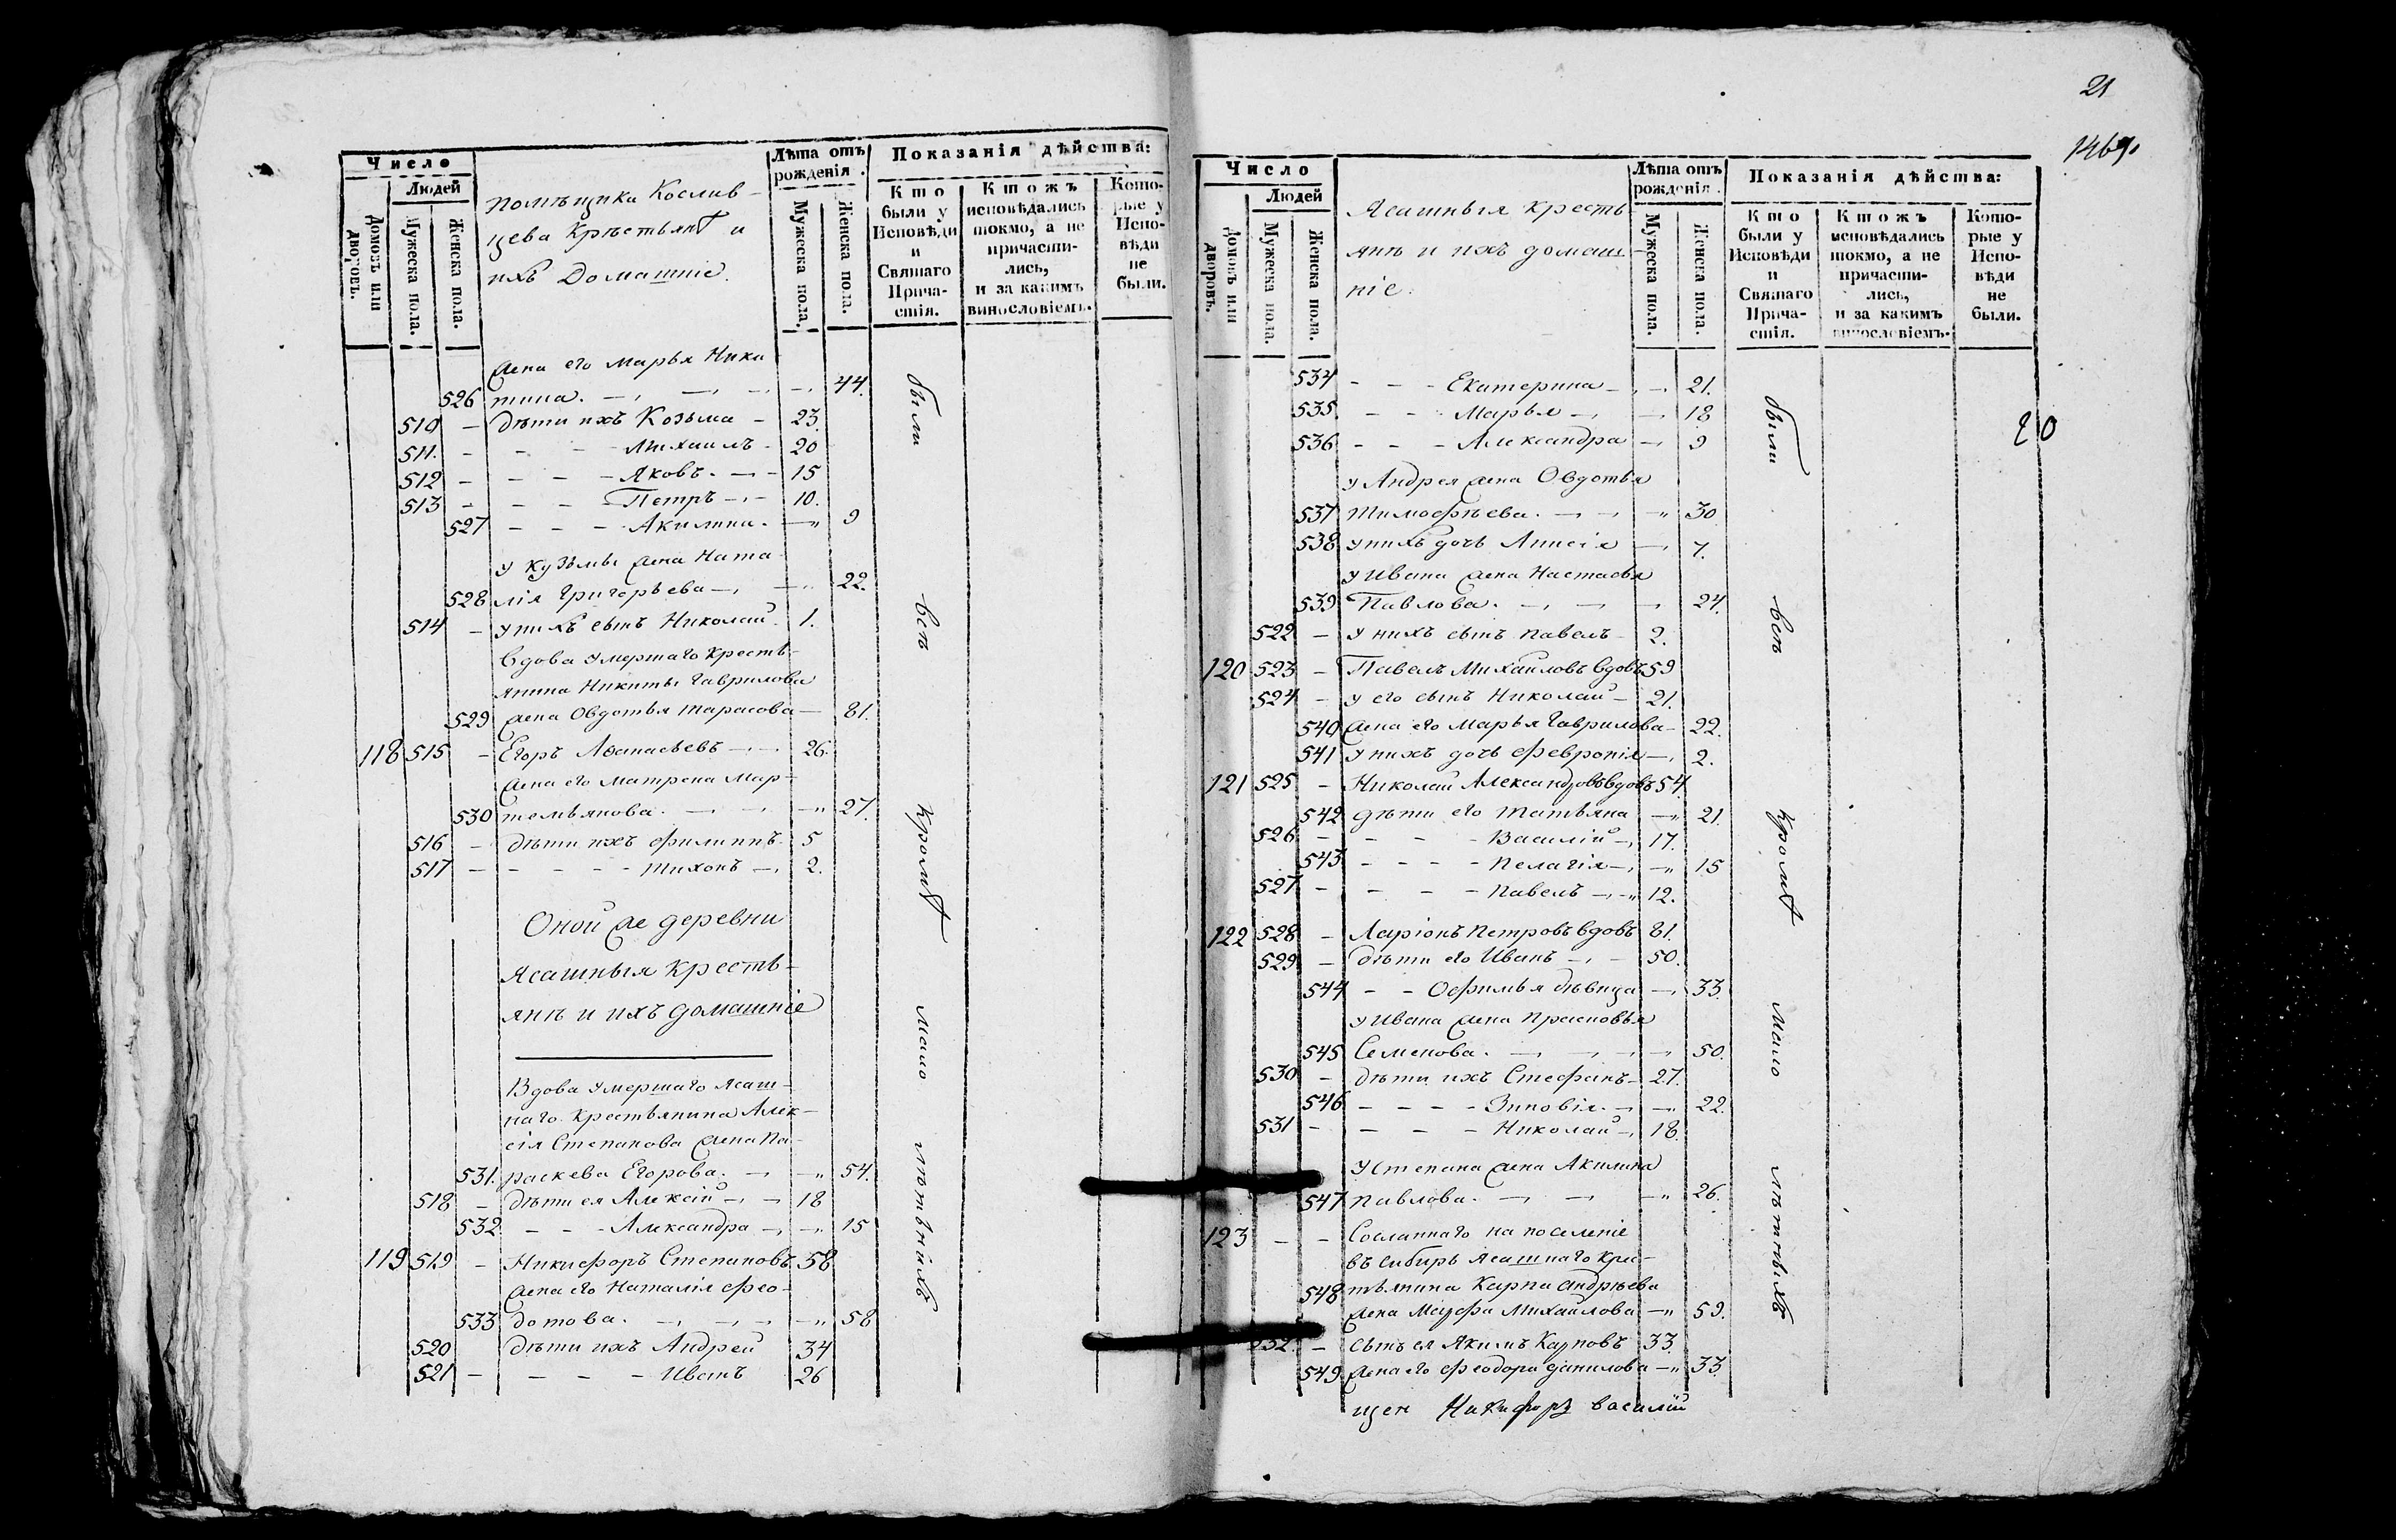 Число
Людей
Домовъ или дворовъ.
Мужеска пола.
Женска пола.
помѣщика Кослив-
цева Крѣстьянъ и
ихъ Домашніе.
Лѣта отъ рожденія.
Мужеска пола.
Женска пола.
Показанія дѣйства:
Кто были у Исповѣди и Святаго Прича-стія.
Ктожъ исповѣдались токмо, а не причасти-лись, и за какимъ винословіемъ.
Кото-рые у Испо-вѣди не были.
жена его Марья Ники
526 тина. 44.
510 - дѣти ихъ Козьма - 23.
511. - - - Михаилъ - 20
512 - - - Яковъ. - 15
513 - - - Петръ - 10.
527 - - - Акилина. - 9
у Кузьмы жена Ната-
528 лія Григорьева - 22.
514 - у нихъ сынъ Николай. 1.
вдова умершаго крестъ-
янина Никиты Гаврилова
529 жена Овдотья Тарасова - 81.
118 515 - Егоръ Афанасьевъ - 26.
жена его Матрена Мар-
530 темьянова. - 27.
516 - дѣти ихъ Филиппъ. 5
517 - - - - Тихонъ - 2.
Оной же деревни
Ясашныя Кресть-
янъ и ихъ домашніе
Вдова умершаго ясаш-
наго крестьянина Алек-
сія Степанова жена Па-
531. раскева Егорова. - 54.
518 - дѣти ея Алексій - 18
532 - - - Александра - 15
119 519 - Никифоръ Степановъ 58
жена его Наталія Фео-
533 дотова. - 58
520 дѣти ихъ Андрей 34
521 - - - - Иванъ 26
были
всѣ
кромѣ
мало
лѣтнихъ
21
1469.
Число
Людей
Домовъ или дворовъ.
Мужеска пола.
Женска пола.
Ясашныя кресть-
янъ и ихъ домаш-
ніе.
Лѣта отъ рожденія.
Мужеска пола.
Женска пола.
Показанія дѣйства:
Кто были у Исповѣди и Святаго Прича-стія.
Ктожъ исповѣдались токмо, а не причасти-лись, и за какимъ винословіемъ.
Кото-рые у Испо-вѣди не были.
534 - - - Екатерина - 21.
535 - - - Марья - 18
536 - - - Александра - 9
20
у Андрея жена Овдотья
537 Тимофѣева. - 30
538 у нихъ дочь Анисія - 7.
у Ивана жена Настасья
539 Павлова. - 24.
522 - у нихъ сынъ Павелъ - 2.
120 523 - Павелъ Михайловъ вдовъ 59
524 - у его сынъ Николай - 21.
540 жена его Марья Гаврилова - 22.
541 у нихъ дочь Февронія - 2.
121 525 - Николай Александровъ вдовъ 54.
542 дѣти его Татьяна - 21.
526 - - - Василій - 17.
543 - - - - Пелагія - 15
527 - - - - Павелъ - 12.
122 528 - Ларіонъ Петровъ вдовъ 81.
529 - дѣти его Иванъ - 50.
544 - - Офимья дѣвица - 33.
у Ивана жена Прасковья
545 Семенова. - 50.
530 - дѣти ихъ Стефанъ - 27.
546 - - - - Зиновія. - 22.
531 - - - - Николай - 18.
у Степана жена Акилина
547 Павлова. - 26.
123 - - Сосланнаго на поселеніе
въ Сибирь ясашнаго крес-
548 тьянина Карпа Андрѣева
жена Марфа Михайлова - 59.
532. - сынъ ея Якимъ Карповъ 33.
549 жена его Феодора Данилова - 33.
были
всѣ
кромѣ
мало
лѣтныхъ
щен Никифоръ василій